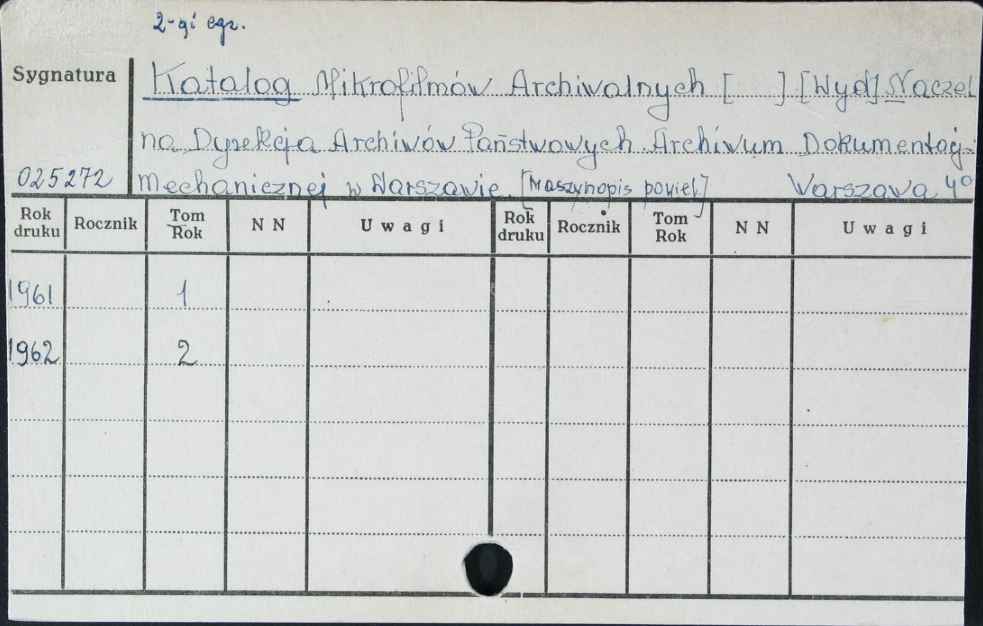 2-gi egz.
Sygnatura
Katalog Mikrofilmów Archiwalnych [ ] [Wyd] Naczel
na Dyrekcja Archiwów Państwowych Archiwum Dokumentacji
025272 Mechanicznej w Warszawie. [Maszynopis powiel] Warszawa 4°
Rok druku Rocznik Tom Rok N N Uwagi Rok druku Rocznik Tom Rok N N Uwagi
1961 1
1962 2